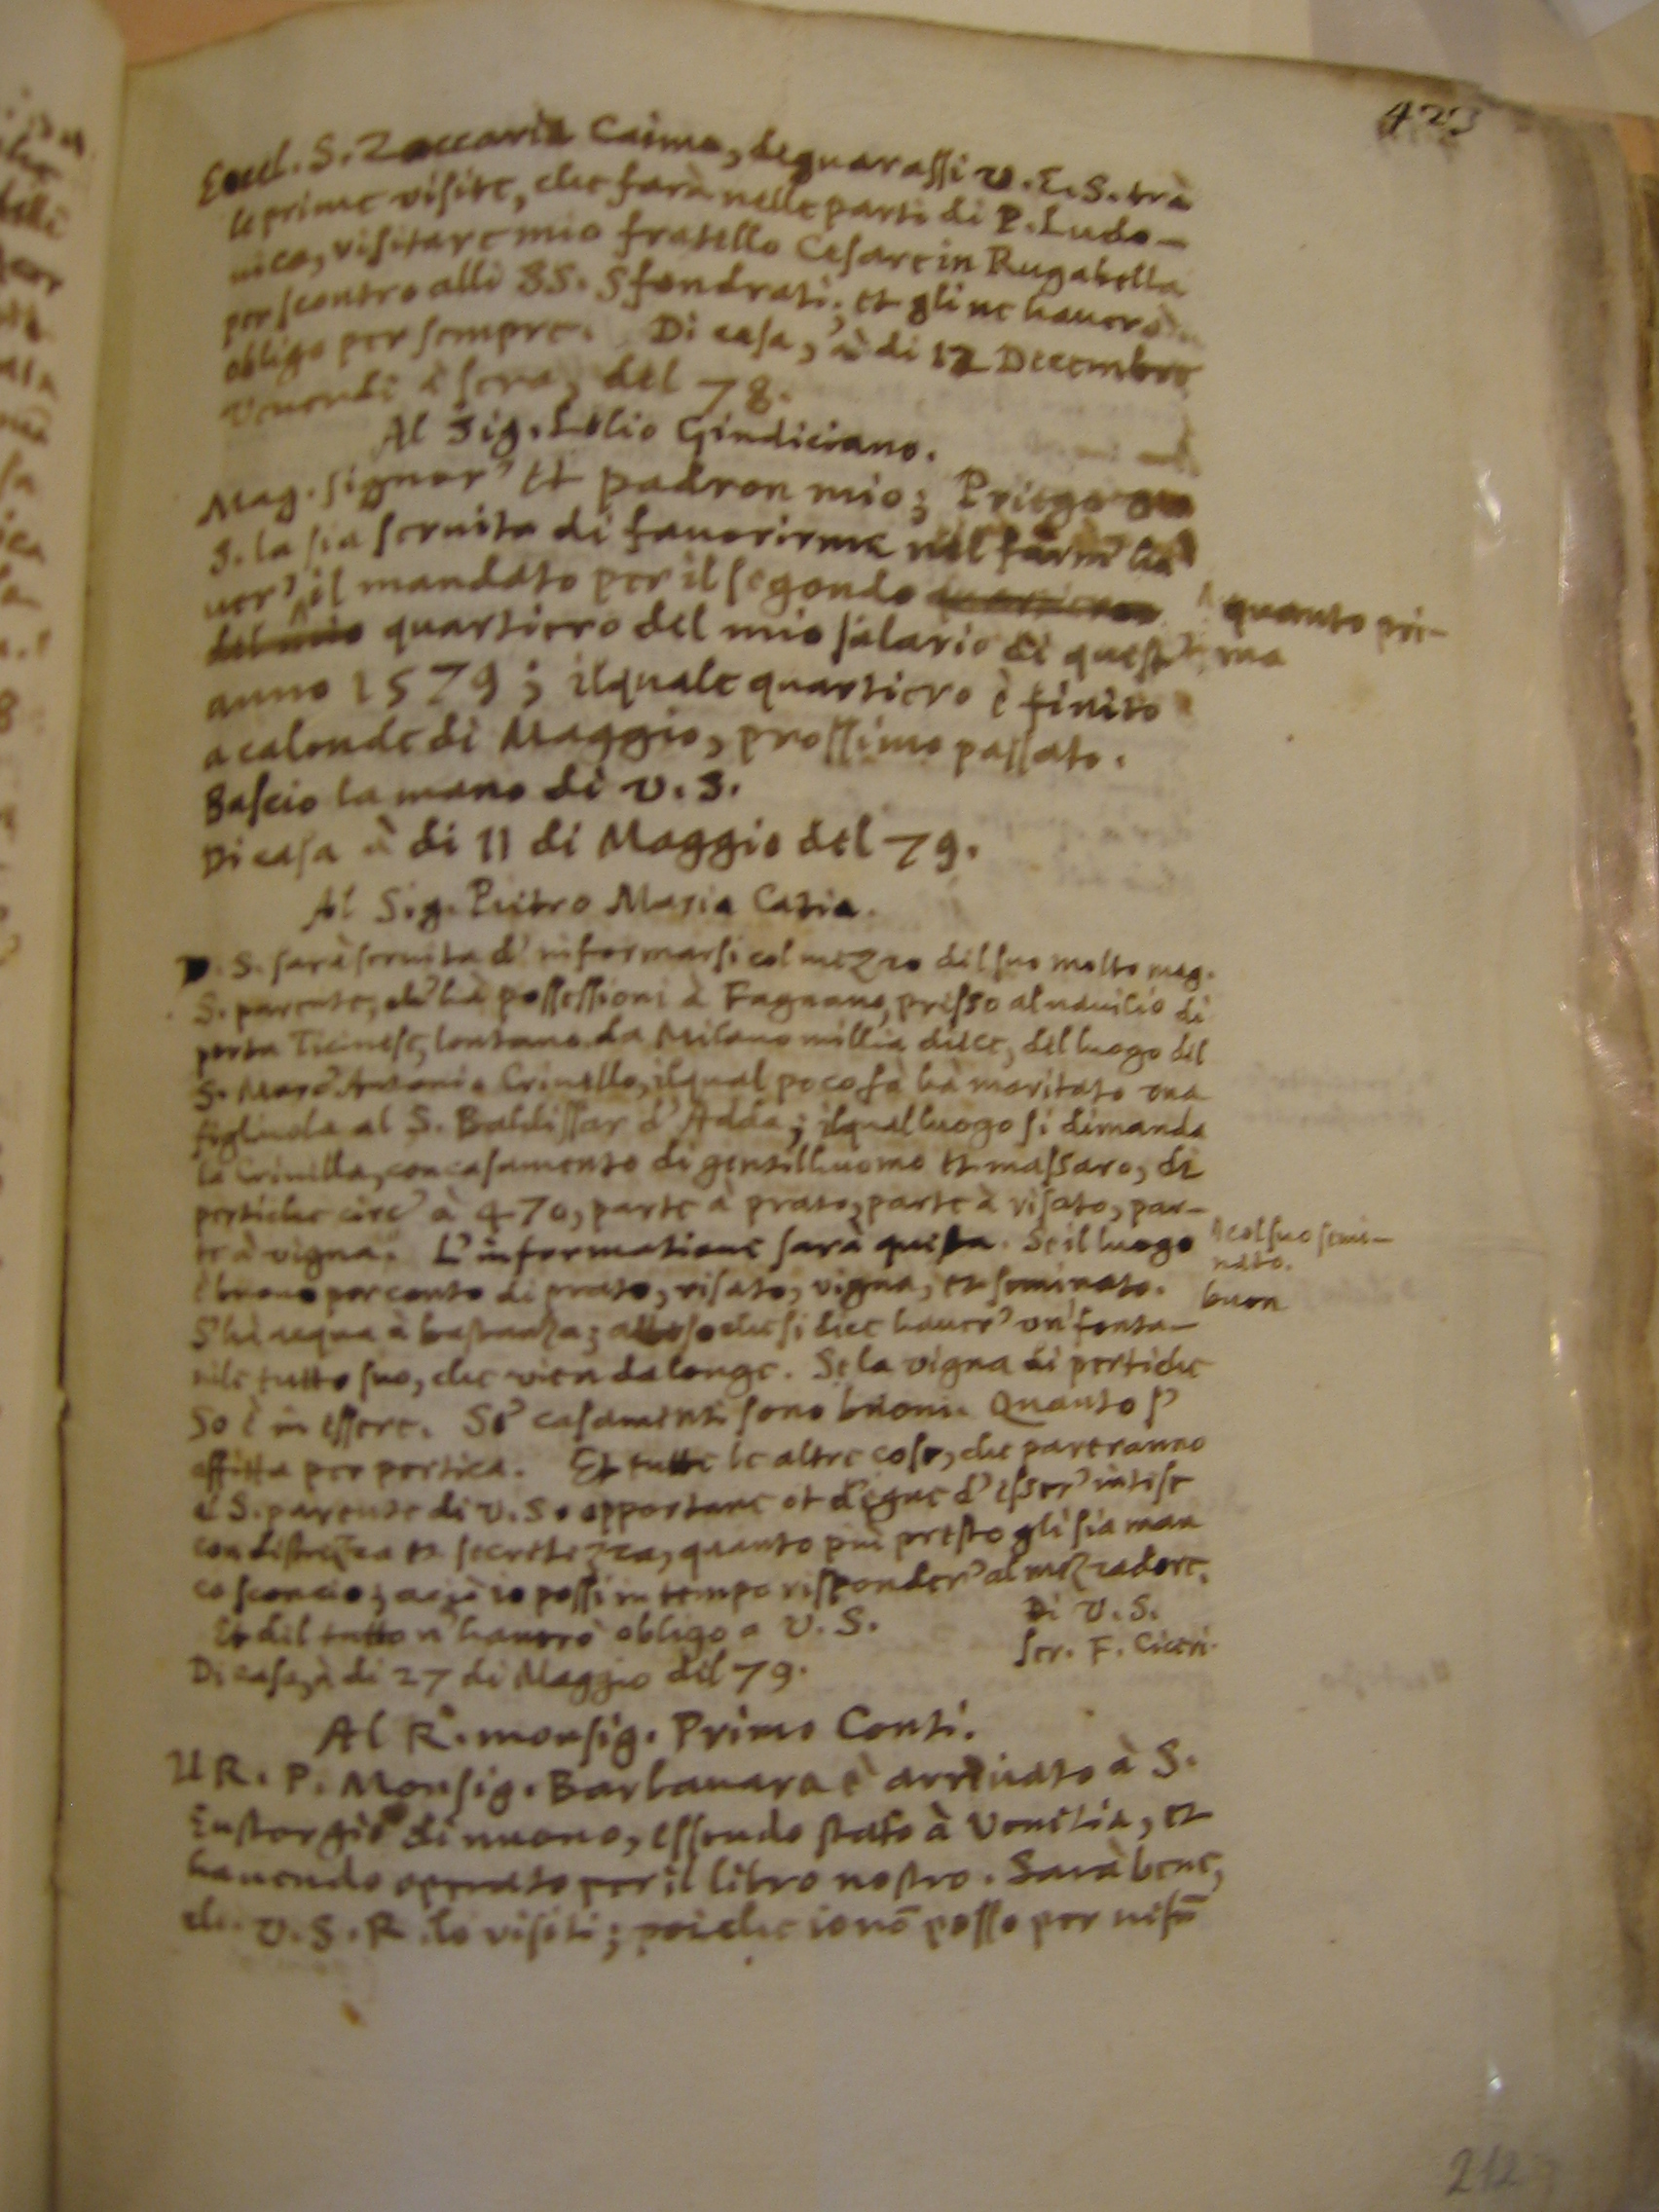 423
Eccel. S. Zaccaria Caimo, degnarassi v. E. S. trà
le prime visite, che farà nelle parti di P. Ludo-
uica, visitare mio fratello Cesare in Rugabella
per scontro alli SS. Sfondrati; et gli ne hauerò
obligo per sempre. Di casa, à di 12 Decembre
Venerdi à sera, del 78.
Al Sig. Lelio Giudiciano.
Mag. signor' et padron mio; Priego
S. la sia seruita di fauorirme nel farm' ha
uer' il mandato per il segondo
quartiero del mio salario di quest'
quanto pri-
ma
anno 1579; ilquale quartiero è finito
a calende di Maggio, prossimo passato.
Bascio la mano di v. S.
Di casa à di 11 di Maggio del 79.
Al Sig. Pietro Maria Catia.
V. S. sarà seruita d' informarsi col mezzo del suo molto mag.
S. parente, ch' hà possessioni à Fagnano, presso al nauilio di
porta Ticinese, lontano da Milano millia diece, del luogo del
S. Marc' Antonio Criuello, ilqual poco fà hà maritato una
figliuola al S. Baldissar d' Adda; ilqual luogo si dimanda
la Criuella, con casamento di gentilhuomo et massaro, di
pertiche circ' à 470, parte à prato, parte à risato, par-
te à vigna. L' informatione sarà questa. Se il luogo
col suo semi-
nato.
è buono per conto di prato, risato, vigna, et seminato.
buon
S' hà acqua à bastanza; atteso che si dice hauer' un' fonta-
nile tutto suo, che vien da longe. Se la vigna di pertiche
50 è in essere. Se' casamenti sono buoni. Quanto s'
affitta per pertica. Et tutte le altre cose, che pareranno
al S. parente di v. S. opportune et degne d' esser' intese
con destrezza et secretezza, quanto più presto gli sia man
co sconcio; acciò io possi in tempo risponder' al mezzadore.
Et del tutto n' hauerò obligo a V. S.
Di V. S.
Ser. F. Ciceri.
Di casa, à di 27 di Maggio del 79.
Al R. monsig. Primo Conti.
Il R. P. Monsig. Barbauara è arriuato à S.
Eustorgio di nuouo, essendo stato à Venetia, et
hauendo operato per il libro nostro. Sarà bene,
che v. S. R. lo visiti; poiche io nō posso per
212